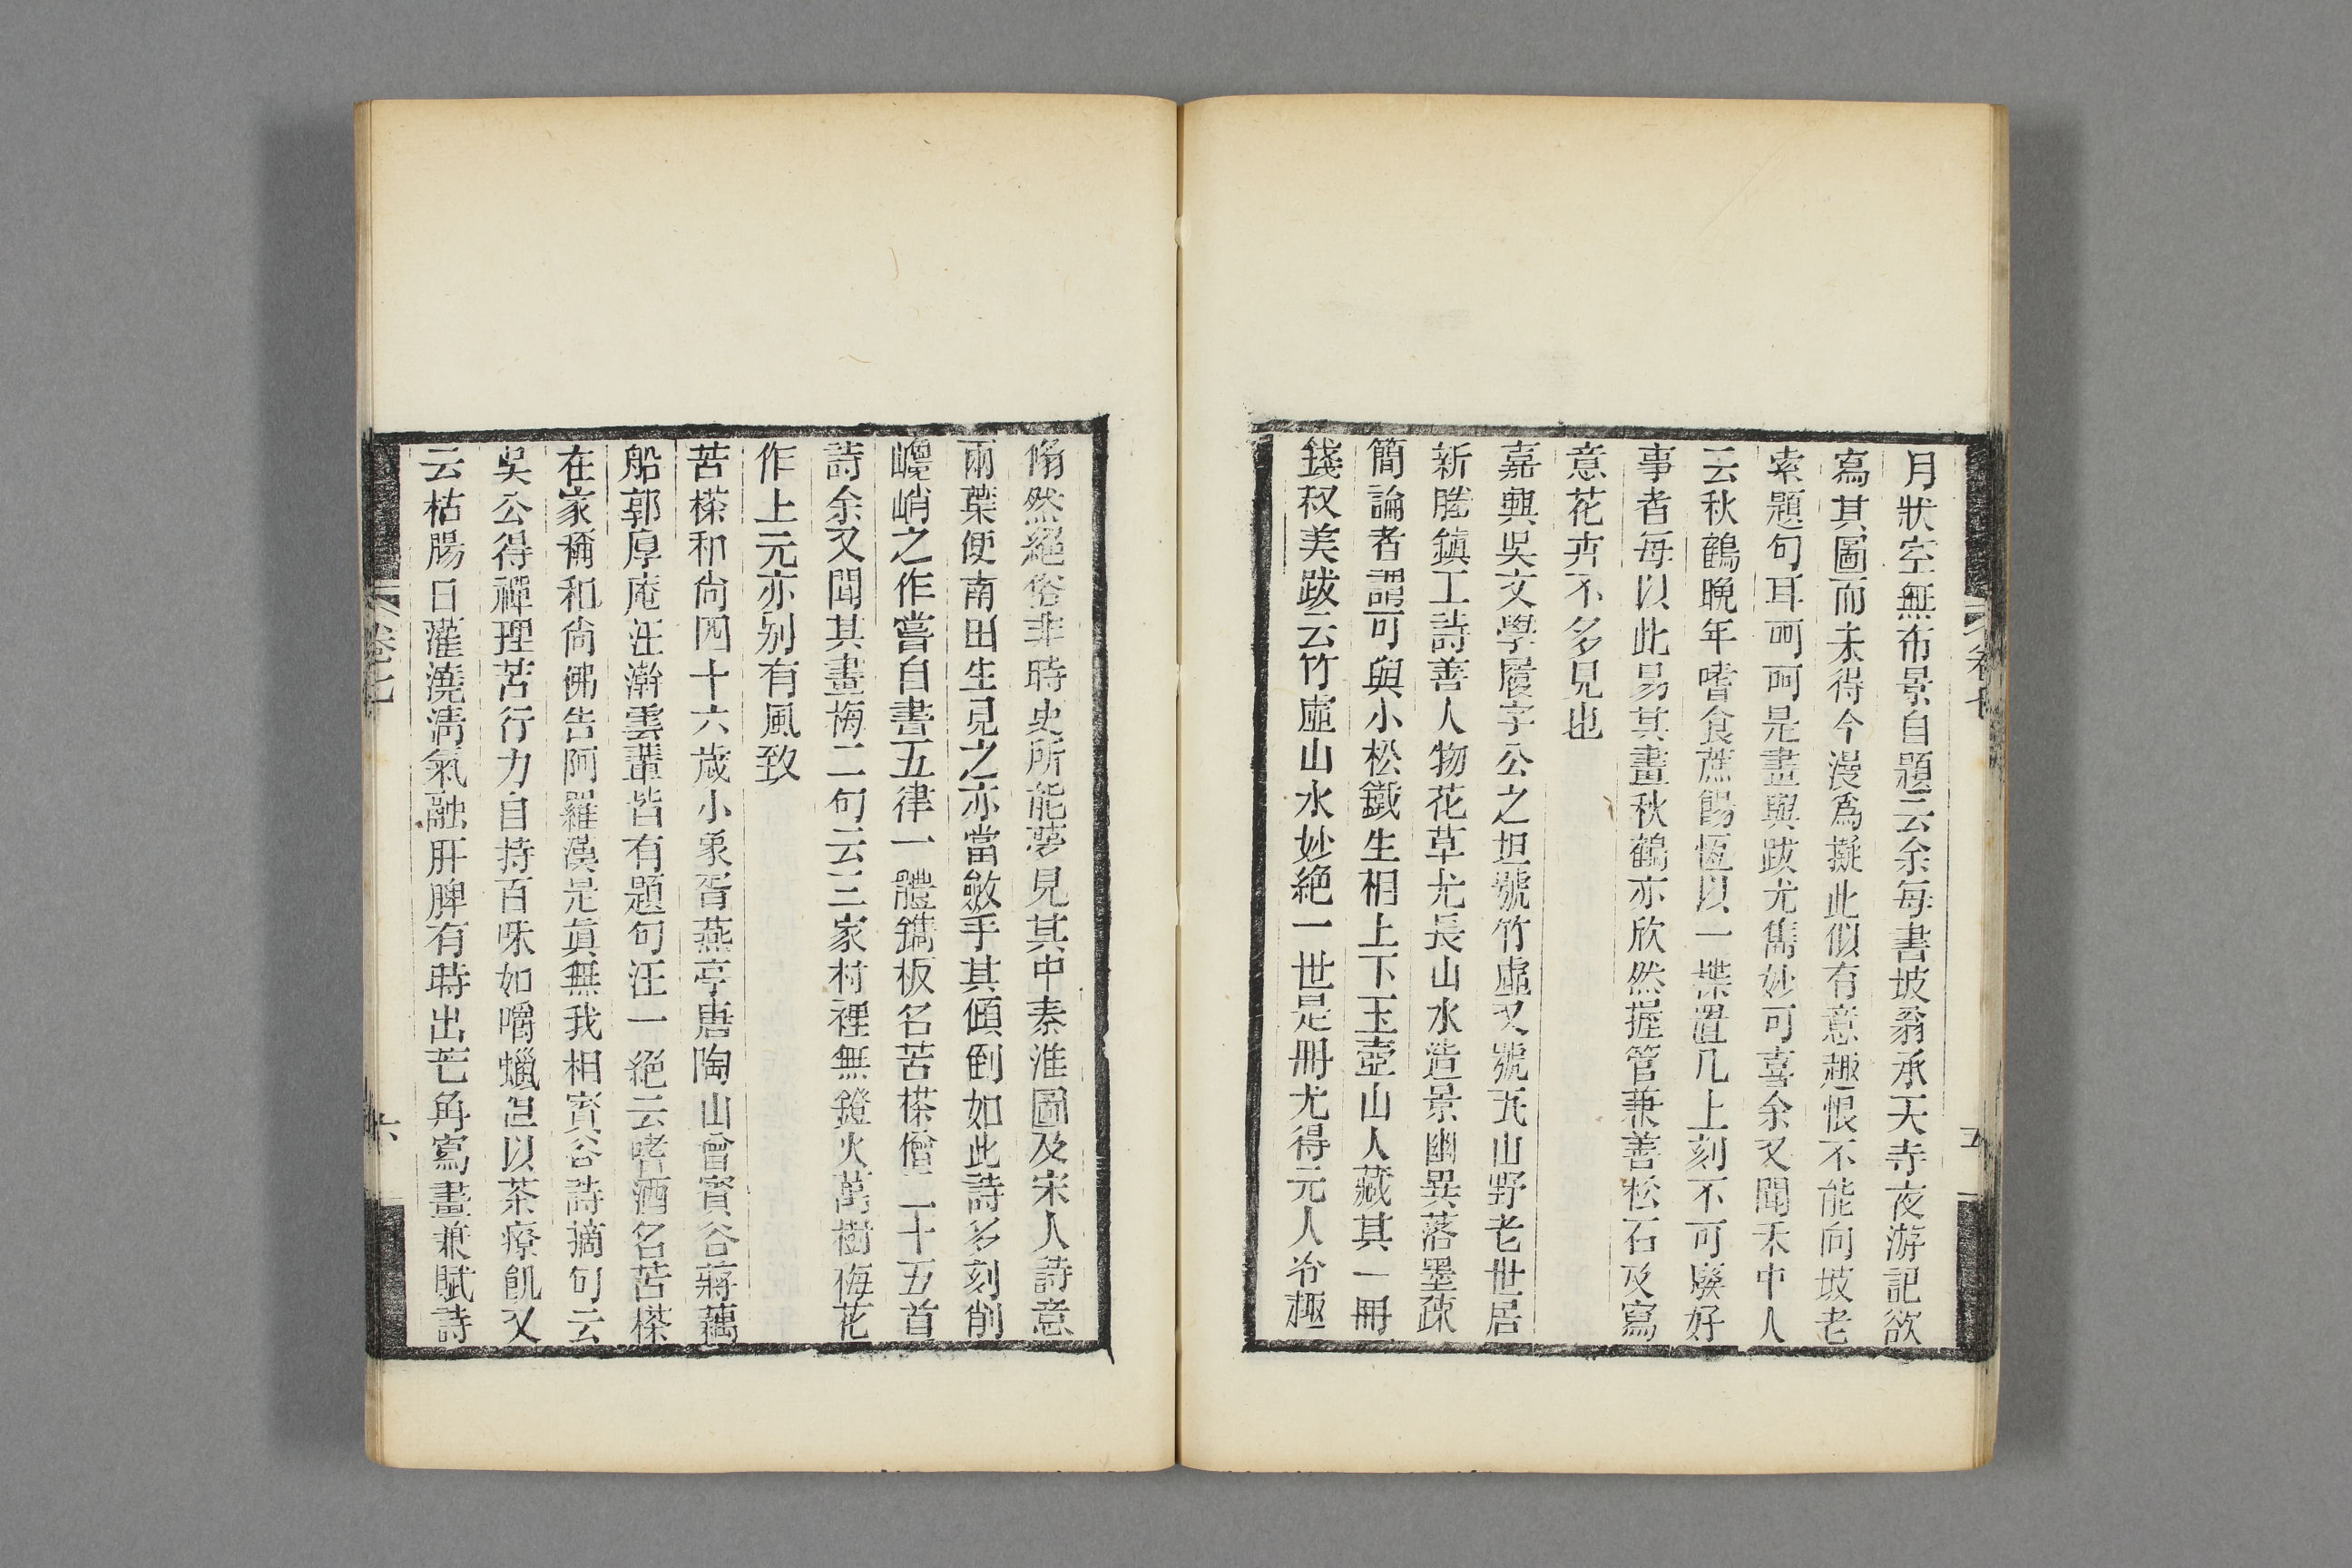 卷七
五
月狀空無布景自題云余每書坡翁承天寺夜游記欲
寫其圖而未得今漫爲擬此似有意趣恨不能向坡老
索題句耳呵呵是畫與跋尤雋妙可喜余又聞禾中人
云秋鶴晚年嗜食蔗餳恆以一楪置几上刻不可廢好
事者每以此易其畫秋鶴亦欣然握管兼善松石及寫
意花卉不多見也
嘉興吳文學履字公之坦號竹虛又號瓦山野老世居
新塍鎮工詩善人物花草尤長山水造景幽異落墨疎
簡論者謂可與小松鐵生相上下玉壺山人藏其一冊
錢叔美跋云竹虛山水妙絕一世是冊尤得元人冷趣
翛然絕俗非時史所能夢見其中秦淮圖及宋人詩意
兩葉便南田生見之亦當斂手其傾倒如此詩多刻削
巉峭之作嘗自書五律一體鐫板名苦𣗪僧二十五首
詩余又聞其畫梅二句云三家村裡無鐙火萬樹梅花
作上元亦别有風致
苦𣗪和尚四十六歲小象胥燕亭唐陶山曾賓谷蔣藕
船郭厚庵汪瀚雲輩皆有題句汪一絕云嗜酒名苦𣗪
在家稱和尚佛告阿羅漢是眞無我相賓谷詩摘句云
吳公得禪理苦行力自持百味如嚼蠟但以茶療飢又
云枯腸日灌澆淸氣融肝脾有時出芒角寫畫兼賦詩
卷七
六